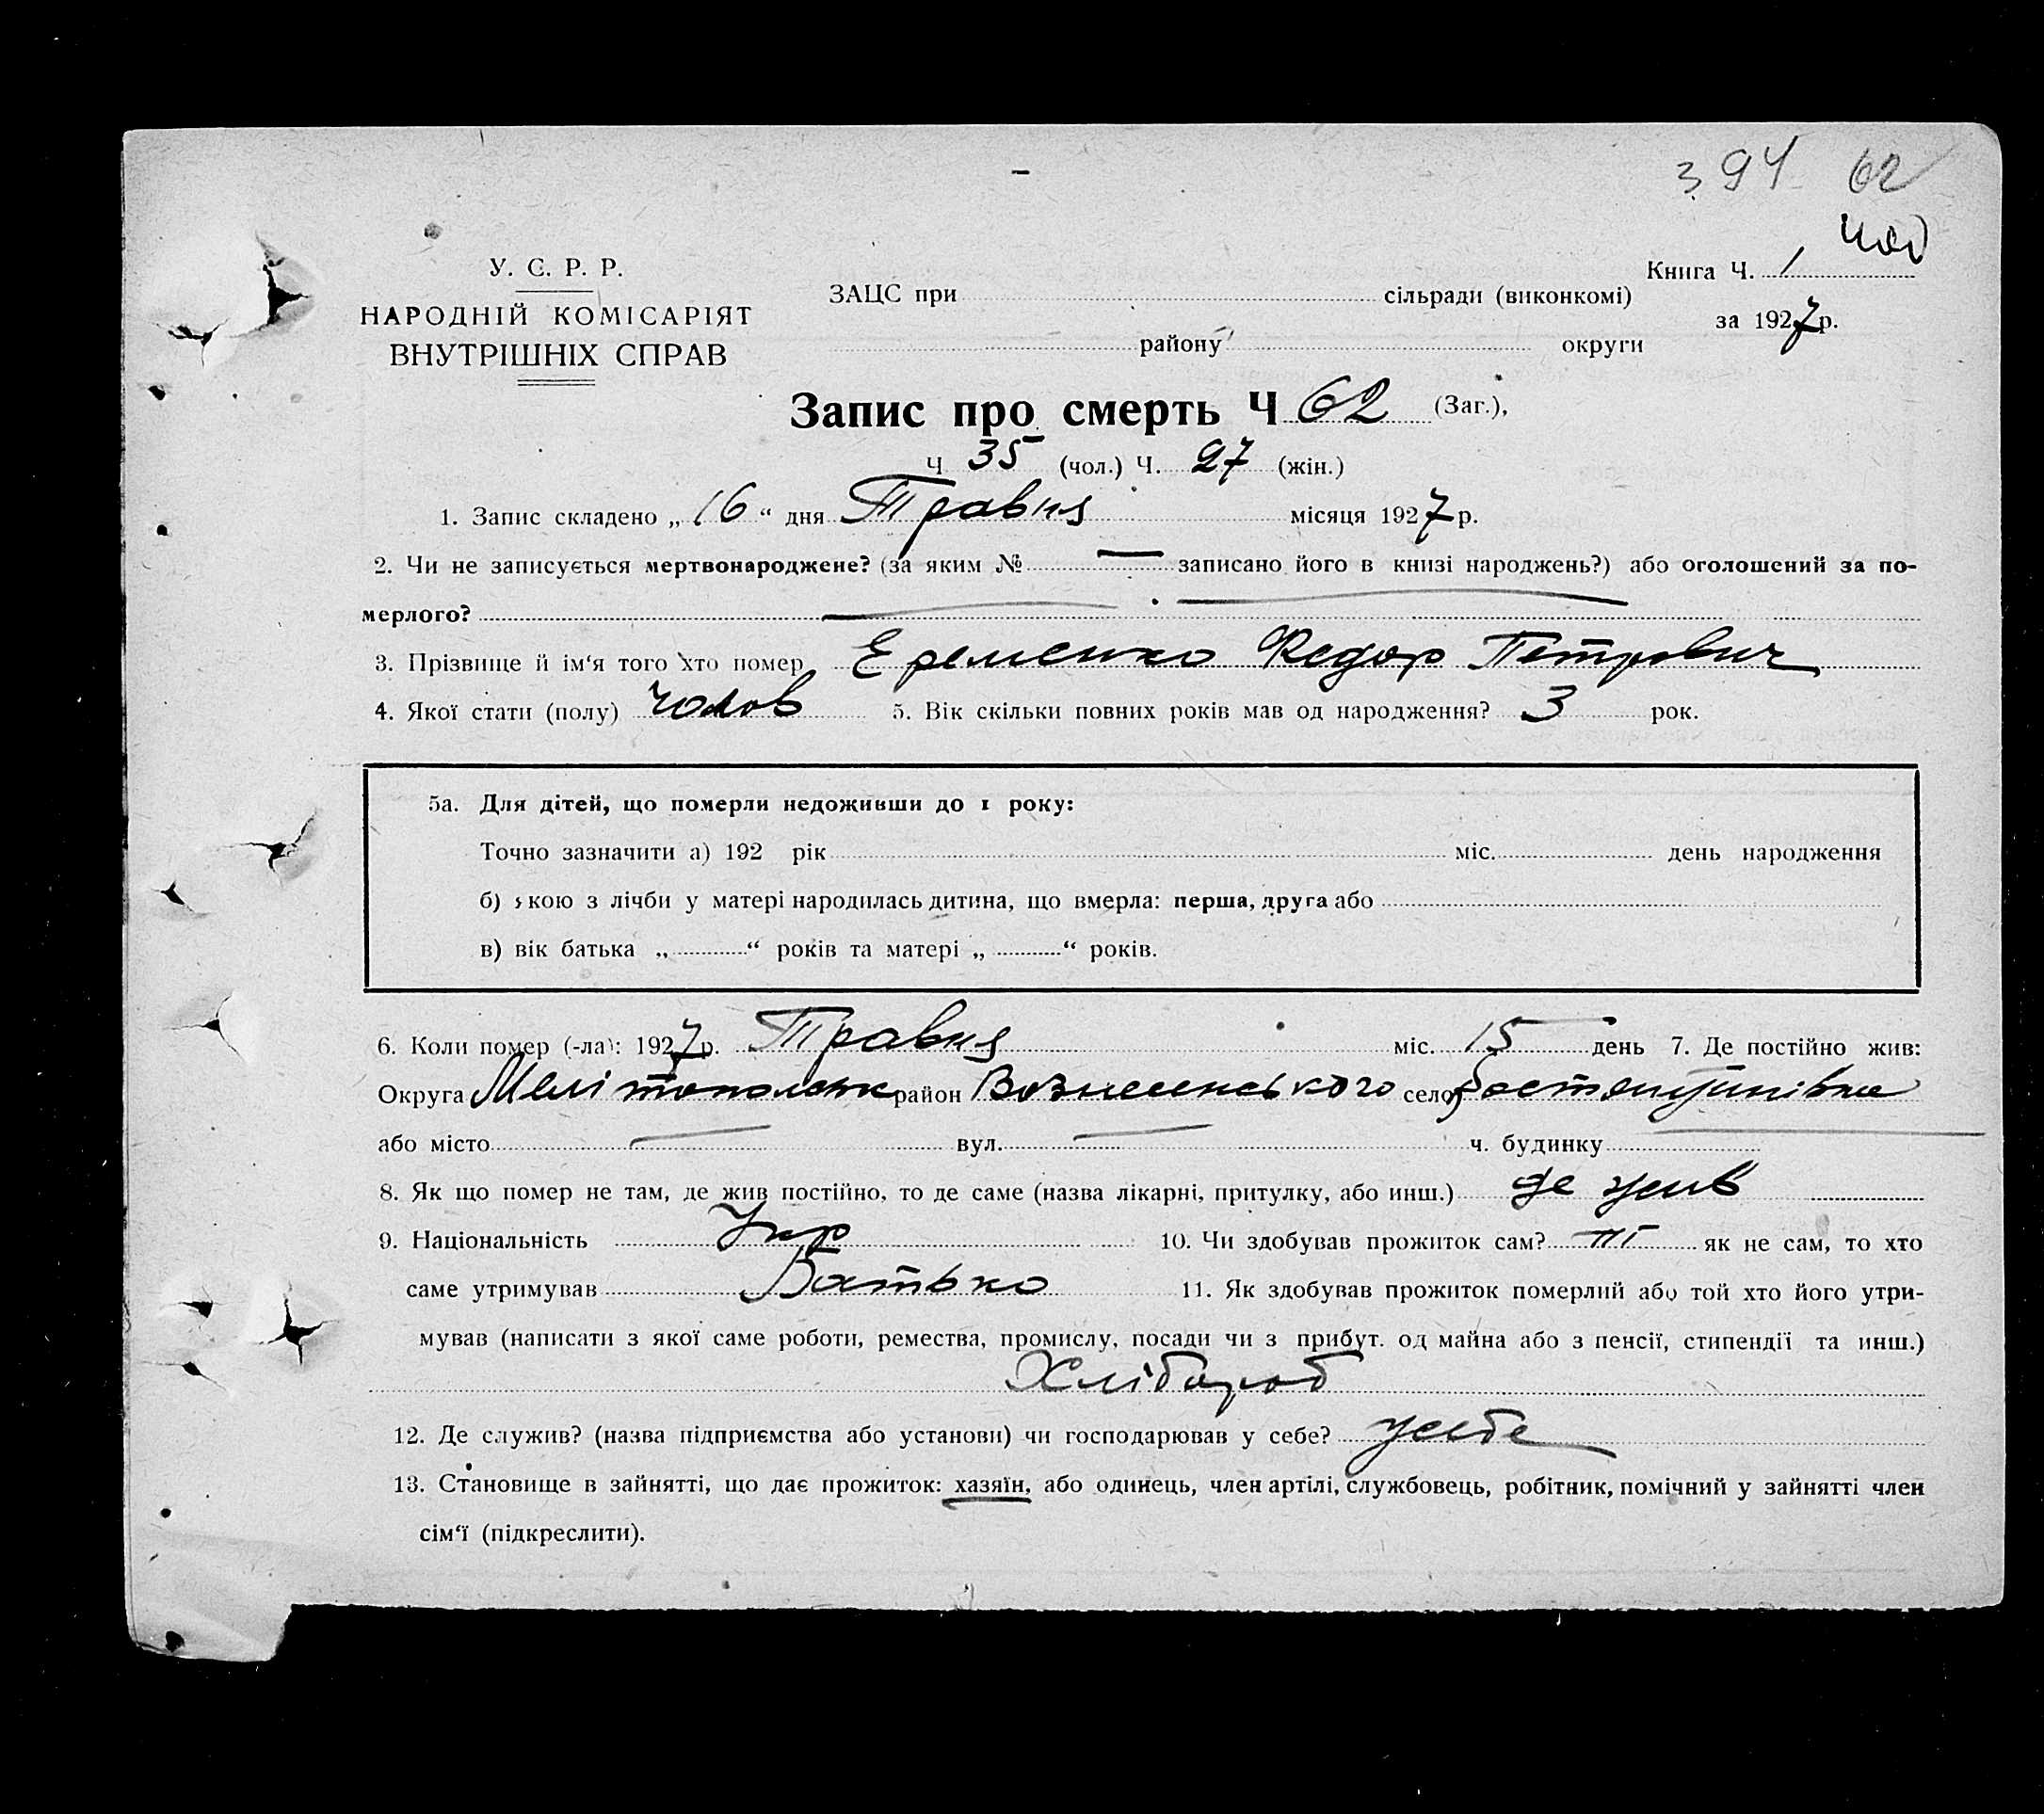 394 62
У. С. Р. Р.
НАРОДНІЙ КОМІСАРІЯТ
ВНУТРІШНІХ СПРАВ
Книга Ч. 1
ЗАЦС при сільради (виконкомі)
за 1927 р.
району округи
Запис про смерть Ч 62 (Заг.),
Ч 35 (чол.) Ч. 27 (жін.)
1. Запис складено „ 16 “ дня Травня місяця 1927 р.
2. Чи не записується мертвонароджене? (за яким № — записано його в книзі народжень?) або оголошений за по-
мерлого?
3. Прізвище й ім‘я того хто помер Еременко Федор Петрович
4. Якої стати (полу) Чолов 5. Вік скільки повних років мав од народження? 3 рок.
5а. Для дітей, що померли недоживши до 1 року:
Точно зазначити а) 192 рік міс. день народження
б) якою з лічби у матері народилась дитина, що вмерла: перша, друга або
в) вік батька „ “ років та матері „ “ років.
6. Коли помер (-ла): 1927 р. Травня міс. 15 день 7. Де постійно жив:
Округа район Вознесенського село
або місто — вул. — ч. будинку
8. Як що помер не там, де жив постійно, то де саме (назва лікарні, притулку, або инш.) де жив
9. Національність Укр 10. Чи здобував прожиток сам? ні як не сам, то хто
саме утримував Батько 11. Як здобував прожиток померлий або той хто його утри-
мував (написати з якої саме роботи, ремества, промислу, посади чи з прибут. од майна або з пенсії, стипендії та инш.)
Хлібороб
12. Де служив? (назва підприємства або установи) чи господарював у себе? у себе
13. Становище в зайнятті, що дає прожиток: хазяїн, або одинець, член артілі, службовець, робітник, помічний у зайнятті член
сім‘ї (підкреслити).